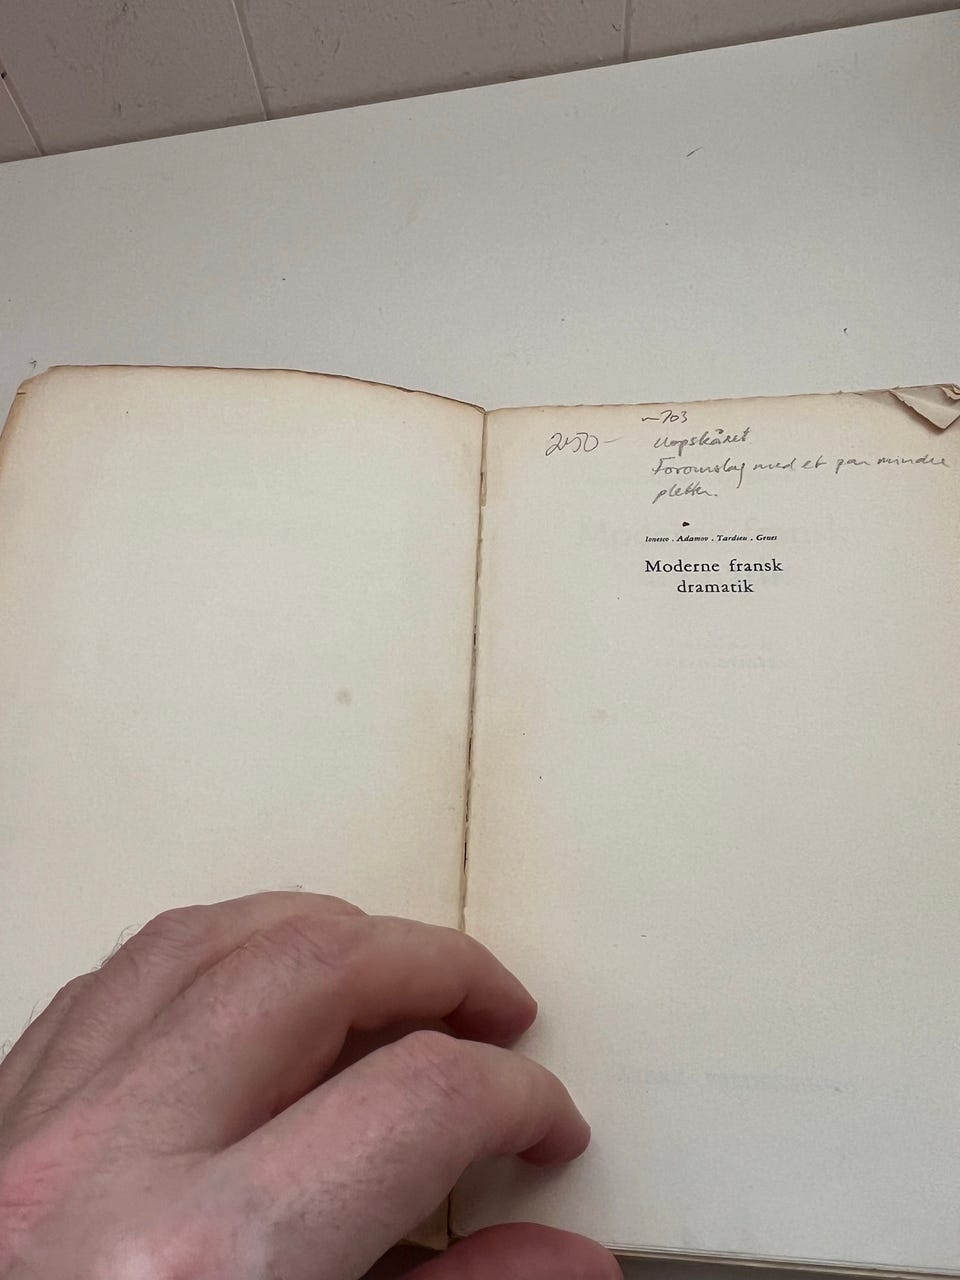 703
250-
Uopskåret.
Foromslag med et par mindre
pletter.
Ionesco . Adamov . Tardieu . Genet
Moderne fransk
dramatik